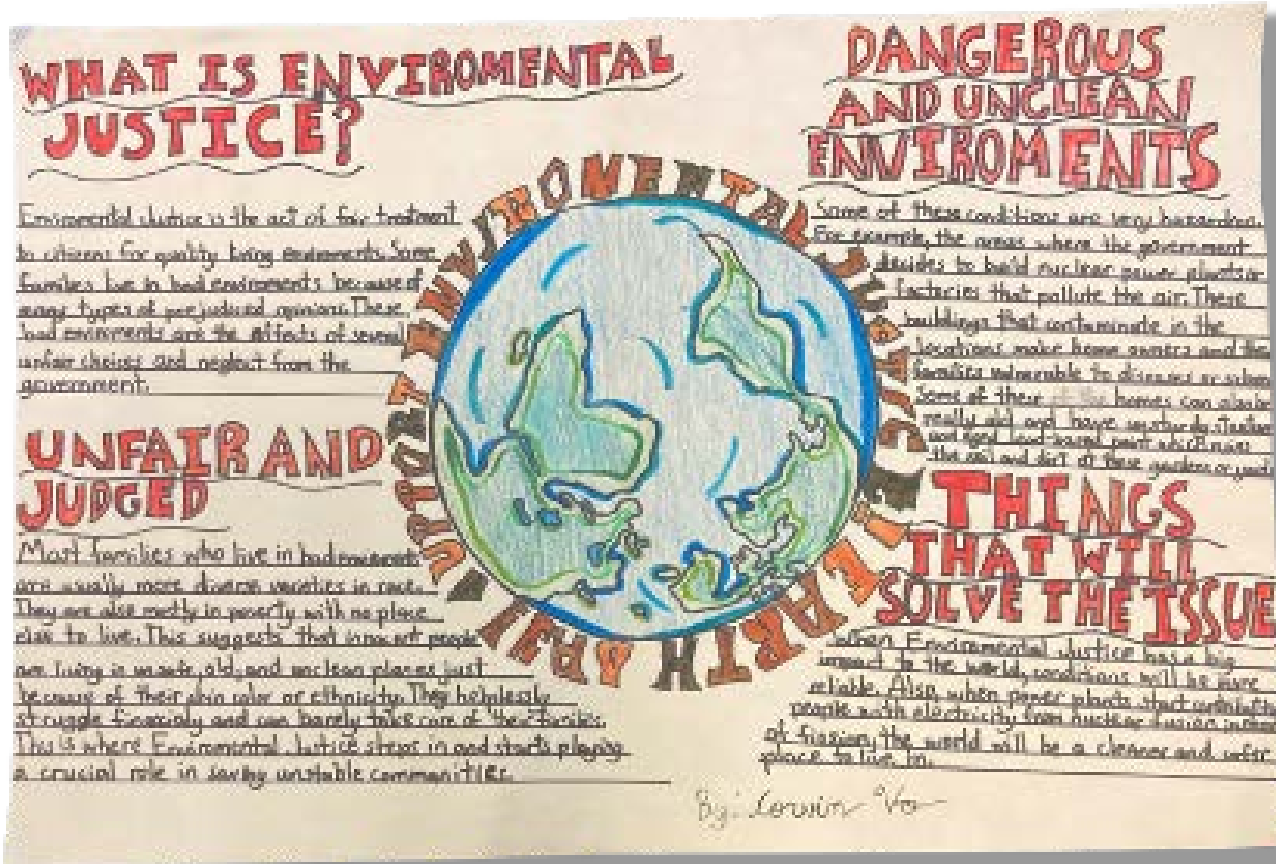 WHAT IS ENVIROMENTAL
JUSTICE?
Enviromental Justice is the act of fair treatment
to citizens for quality living enviroments. Some
families live in bad enviroments because of
many types of prejudiced opinions. These
bad enviroments are the effects of several
unfair choices and neglect from the
government.
UNFAIR AND
JUDGED
Most families who live in bad
are usually more diverse varieties in race.
They are also mostly in poverty with no place
else to live. This suggests that innocent people
are living in unsafe, old, and unclean places just
because of their skin color or ethnicity. They helplessly
struggle financialy and can barely take care of their families.
This is where Enviromental Justice steps in and starts playing
a crucial role in saving unstable communities.
ENVIROMENTAL JUSTICE
EARTH DAY
DANGEROUS
AND UNCLEAN
ENVIROMENTS
Some of these conditions are very hazardous.
For example, the areas where the government
decides to build nuclear power plants or
factories that pollute the air. These
buildings that contaminate in the
locations make home owners and
families vulnerable to diseases or
Some of these homes can also be
really old and have unsturdy
and aged lead-based paint which ruins
the soil and dirt of these gardens or
THINGS
THAT WILL
SOLVE THE ISSUE
When Enviromental Justice has a big
impact to the world, conditions will be more
reliable. Also, when power plants start
people with electricity from nuclear fusion
of fission, the world will be a cleaner and safer
place to live in.
By: Corwin Vo